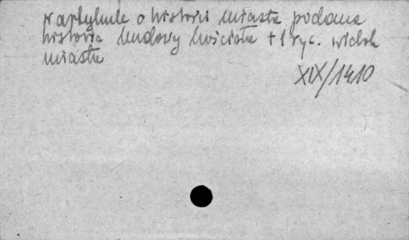 W artykule o historii miasta podana
historia budowy kościoła + 1 ryc. widok
miasta
XIX/1410